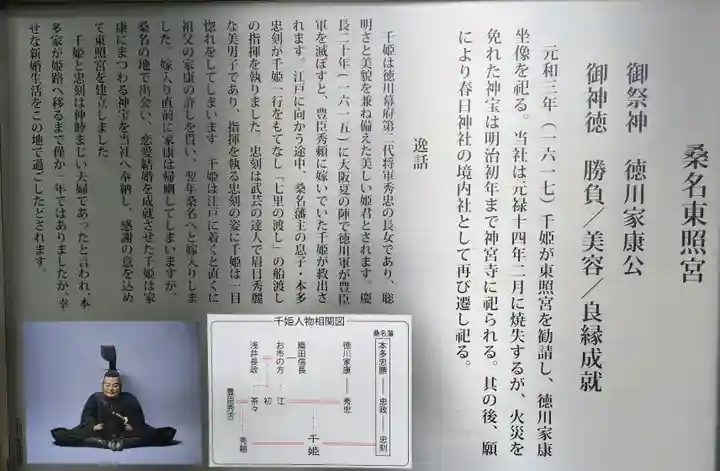 桑名東照宮
御祭神　徳川家康公
御神徳　勝負／美容／良縁成就
元和三年（一六一七）千姫が東照宮を勧請し、徳川家康
坐像を祀る。当社は元禄十四年二月に焼失するが、火災を
免れた神宝は明治初年まで神宮寺に祀られる。其の後、願
により春日神社の境内社として再び遷し祀る。
逸話
千姫は徳川幕府第二代将軍秀忠の長女であり、聡
明さと美貌を兼ね備えた美しい姫君とされます。慶
長二十年（一六一五）に大阪夏の陣で徳川軍が豊臣
軍を滅ぼすと、豊臣秀頼に嫁いでいた千姫が救出さ
れます。江戸に向かう途中、桑名藩主の息子・本多
忠刻が千姫一行をもてなし「七里の渡し」の船渡し
の指揮を執りました。忠刻は武芸の達人で眉目秀麗
な美男子であり、指揮を執る忠刻の姿に千姫は一目
惚れをしてしまいます。千姫は江戸に着くと直ぐに
祖父の家康の許しを貰い、翌年桑名へと嫁入りしま
した。嫁入り直前に家康は帰幽してしまいますが、
桑名の地で出会い、恋愛結婚を成就させた千姫は家
康にまつわる神宝を当社へ奉納し、感謝の意を込め
て東照宮を建立しました。
千姫と忠刻は仲睦まじい夫婦であったと言われ、本
多家が姫路へ移るまで僅か一年ではありましたが、幸
せな新婚生活をこの地で過ごしたとされます。
千姫人物相関図
桑名藩
本多忠勝
忠政
忠刻
徳川家康
秀忠
千姫
織田信長
お市の方
江
初
浅井長政
茶々
豊臣秀吉
秀頼